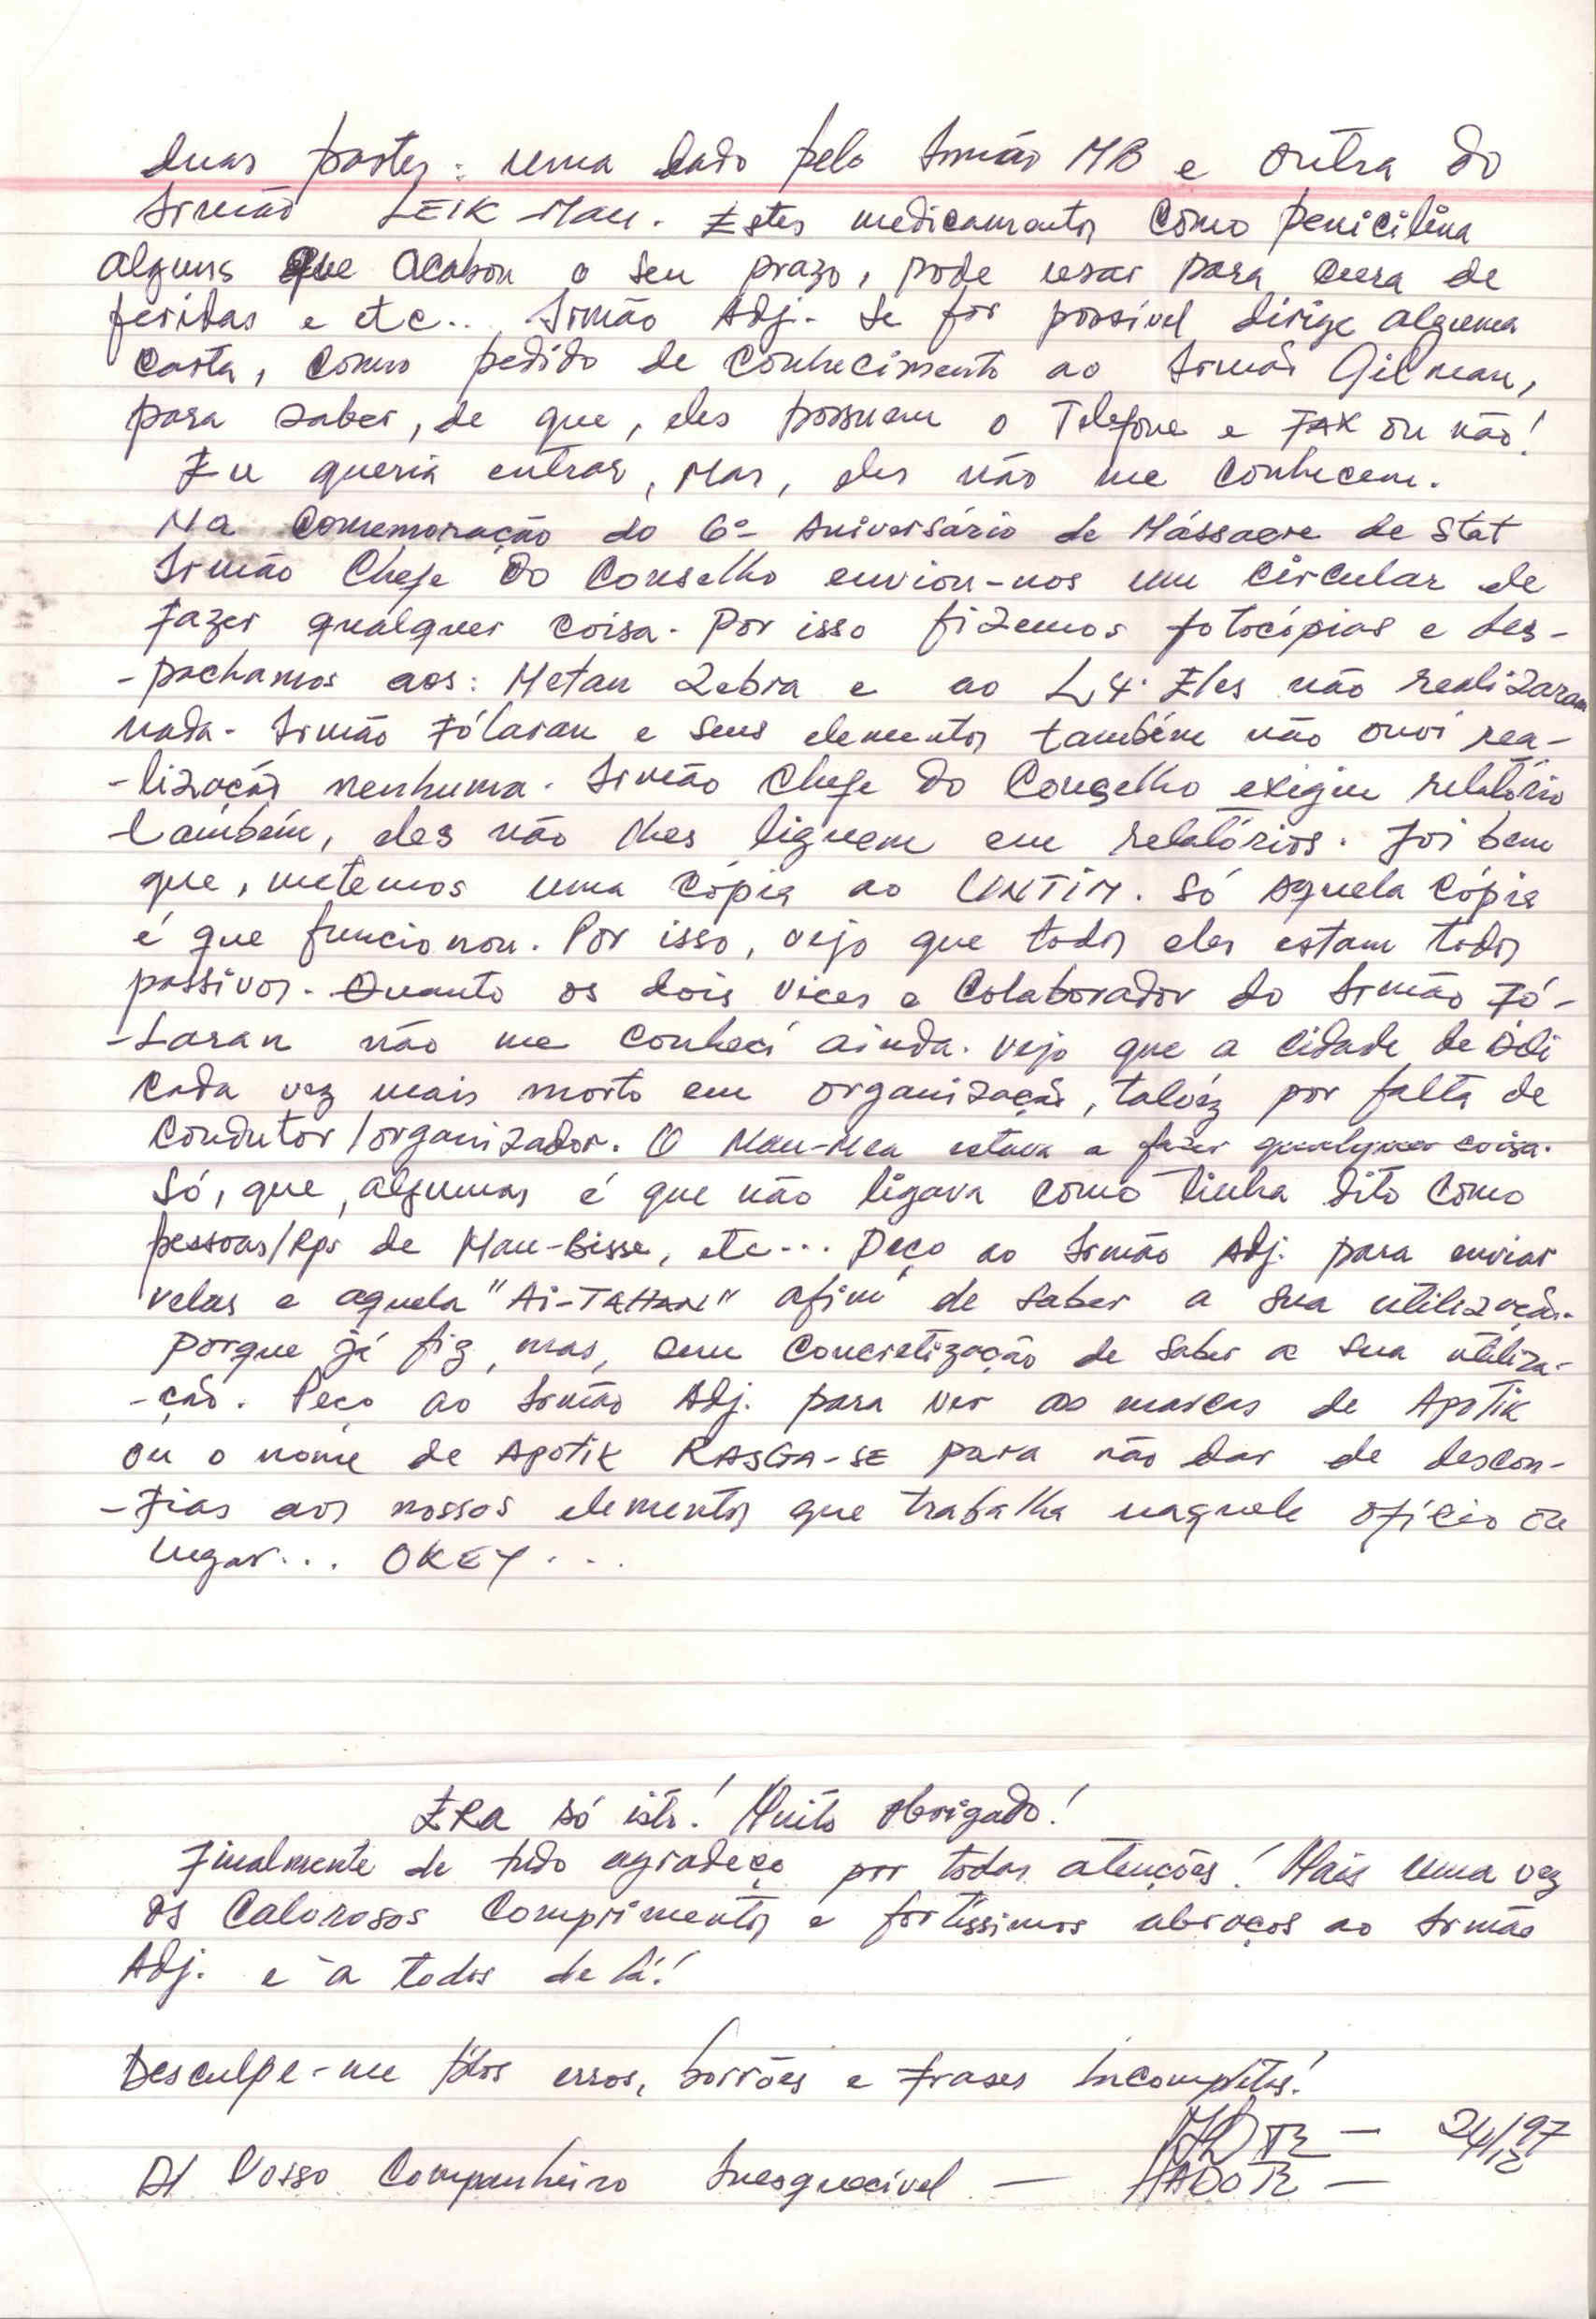 duas partes: uma dado pelo Irmão MB e outra do
Irmão LEIK-Mau. Estes medicamentos como penicilina
alguns que acabou o seu prazo, pode usar para cura de
feridas e etc... Irmão Adj. se for possível dirige alguma
carta, como pedido de conhecimento ao Irmão Gilman,
para saber, de que, eles possuem o Telefone e FAX ou não!
Eu queria entrar, Mas, eles não me conhecem.
Na Comemoração do 6º Aniversário de Mássacre de Stat
Irmão Chefe do Conselho enviou-nos um circular de
fazer qualquer coisa. Por isso fizemos fotocópias e des-
-pachamos aos: Metan Zebra e ao L4. Eles não realizaram
nada. Irmão Fólaran e seus elementos também não ouvi rea-
-lização nenhuma. Irmão Chefe do Conselho exigiu relatório
também, eles não lhes liguem em relatórios. Foi bem
que, metemos uma cópia ao UNTIM. Só aquela cópia
é que funcionou. Por isso, vejo que todos eles estam todos
passivos. Quanto os dois vices e Colaborador do Irmão Fó-
-Laran não me conheci ainda. vejo que a cidade de Dili
cada vez mais morto em organização, talvéz por falta de
Condutor/organizador. O Mau-Mea estava a fazer qualquer coisa.
Só, que, algumas é que não ligava como tinha dito como
pessoas/Rps de Mau-Bisse, etc... Peço ao Irmão Adj. para enviar
velas e aquela "Ai-TAHAN" afim de saber a sua utilização.
Porque já fiz, mas, sem Concretização de saber a sua utiliza-
-ção. Peço ao Irmão Adj. para ver as marcas de Apotik
ou o nome de Apotik RASGA-SE para não dar de descon-
-fias aos nossos elementos que trabalha naquele ofício ou
lugar... OKEY...
ERA só isto! Muito obrigado!
Finalmente de tudo agradeço por todas atenções! Mais uma vez
os Calorosos Comprimentos e fortíssimos abraços ao Irmão
Adj. e à todos de lá!
Desculpe-me pelos erros, borrões e frases incompletas!
24/12/97
Vosso Companheiro Inesquecível — HADOR —